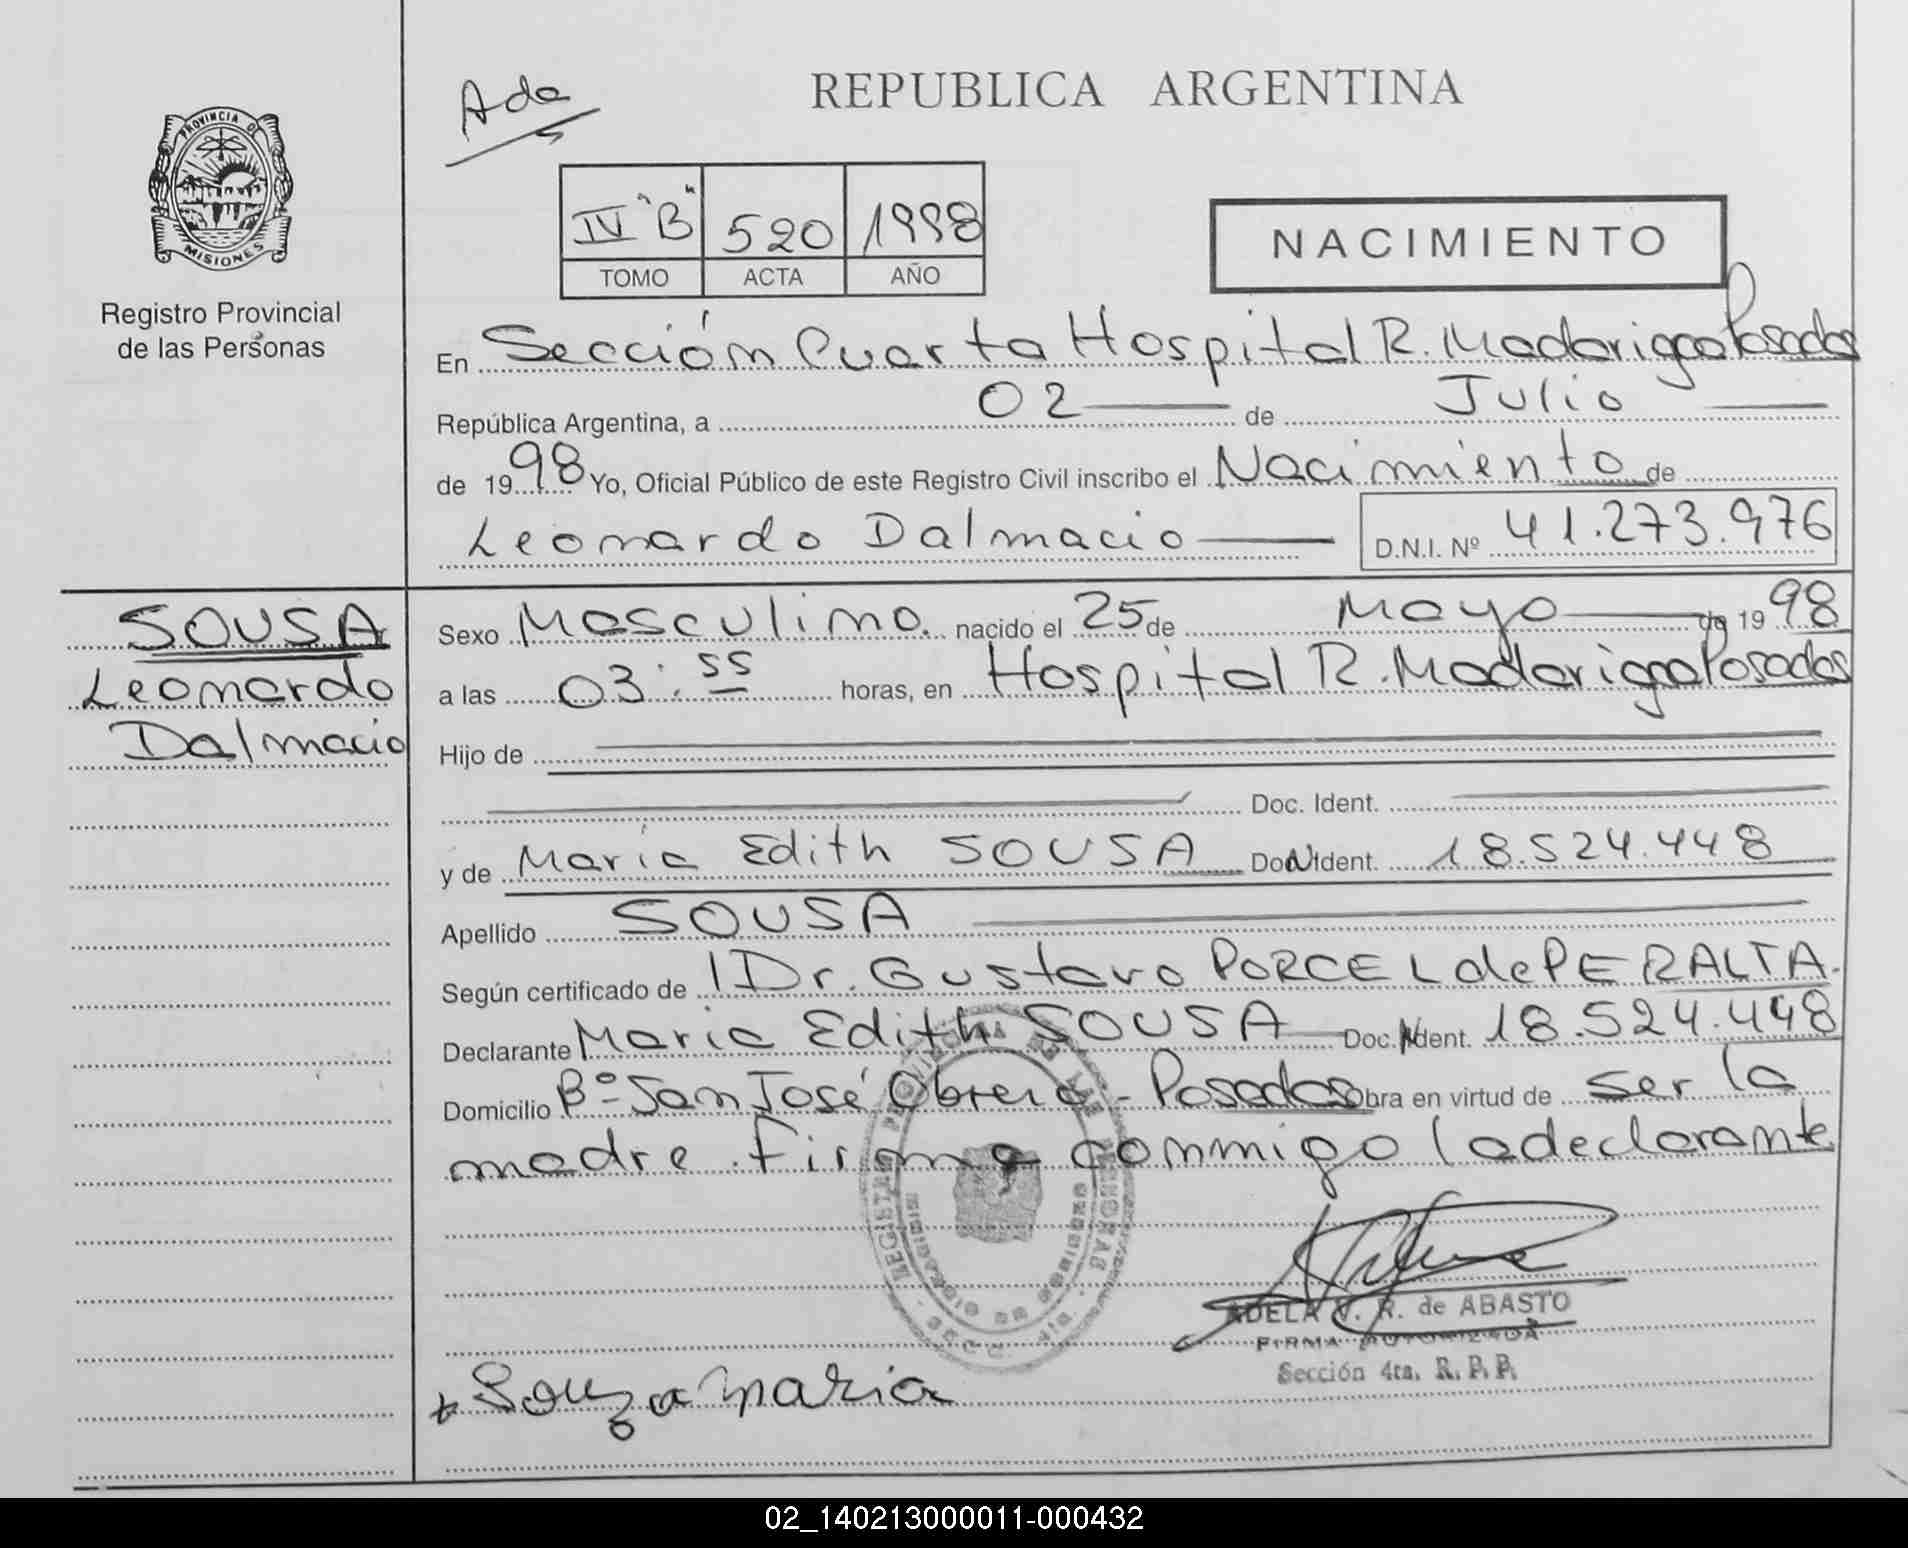 Ada
REPUBLICA ARGENTINA
PROVINCIA DE
MISIONES
Registro Provincial
de las Personas
IV "B" 520 1998
TOMO ACTA AÑO
NACIMIENTO
En Sección Cuarta Hospital R. Madariaga Posadas
República Argentina, a 02 de Julio
de 1998 Yo, Oficial Público de este Registro Civil inscribo el Nacimiento de
Leonardo Dalmacio D.N.I. Nº 41.273.976
SOUSA
Leonardo
Dalmacio
Sexo Masculino. nacido el 25 de Mayo de 1998
a las 03:55 horas, en Hospital R. Madariaga Posadas
Hijo de
Doc. Ident.
y de María Edith SOUSA Doc. Ident. 18.524.448
Apellido SOUSA
Según certificado de Dr. Gustavo PORCEL de PERALTA.
Declarante María Edith SOUSA Doc. Ident. 18.524.448
Domicilio Bº San José Obrero - Posadas Obra en virtud de ser la
madre. Firma conmigo la declarante
REGISTRO PROVINCIAL DE LAS PERSONAS
ADELA V. R. de ABASTO
FIRMA AUTORIZADA
Sección 4ta. R. P. P.
Souza maria
02_140213000011-000432